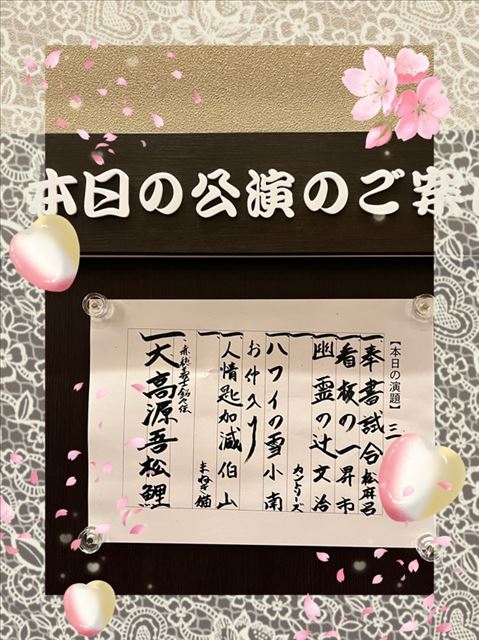 本日の公演のご案
【本日の演題】 三
一 奉書試合 松麻呂
一 看板の一 昇市
一 幽霊の辻 文治
カントリーズ
一 ハワイの雪 小南
お仲入り
一 人情匙加減 伯山
まねき猫
赤穂義士銘々伝
一 大高源吾 松鯉